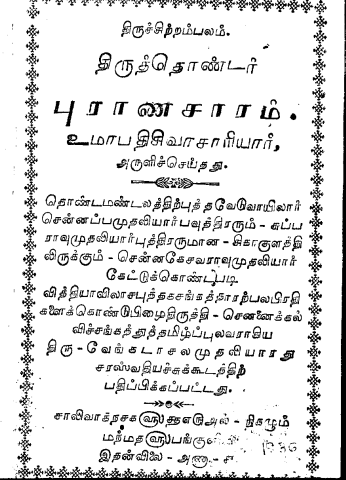 திருச்சிற்றம்பலம்.
திருத்தொண்டர்
புராணசாரம்.
உமாபதிசிவாசாரியார்,
அருளிச்செய்தது.
தொண்டமண்டலத்திற்புத்தவேடுவாயிலார்
சென்னப்பமுதலியார்பவுத்திரரும் - சுப்ப
ராவுமுதலியார்புத்திரருமான - சிகாகுளத்தி
லிருக்கும் - சென்னகேசவராவுமுதலியார்
கேட்டுக்கொண்டபடி
வித்தியாவிலாசபுத்தகசங்கத்தாரற்பலபிரதி
களைக்கொண்டுபிழைதிருத்தி - சென்னைக்கல்
விச்சங்கத்துத்தமிழ்ப்புலவராகிய
திரு - வேங்கடாசலமுதலியாரது
சரஸ்வதியச்சுக்கூடத்திற்
பதிப்பிக்கப்பட்டது.
சாலிவாகநசக - நிகழும்
மன்மத பங்குனி
இதன்விலை - அணா -